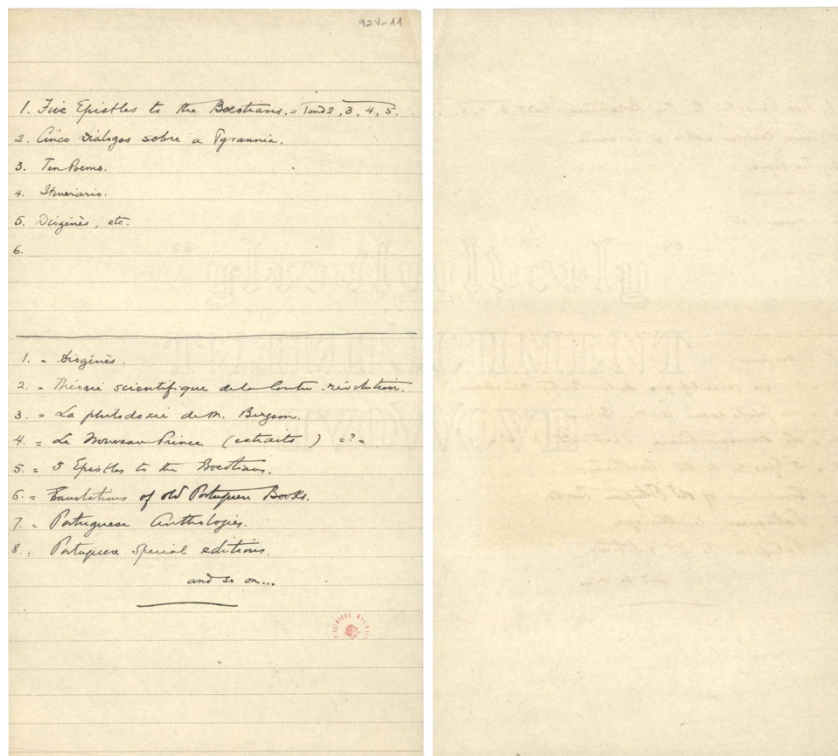 92V-11
1. Five Epistles to the Bœotians. = 1 and 2, 3, 4, 5.
2. Cinco Diálogos sobre a Tyrannia.
3. Ten Poems.
4. Itinerario.
5. Diogénès, etc.
6.
1. = Diogénès.
2. = Théorie scientifique de la Contre-révolution.
3. = La philodoxie de M. Bergson.
4. = Le Nouveau Prince (extraits) =?=
5. = 5 Epistles to the Boeotians.
6. = Translations of old Portuguese Books.
7. = Portuguese Anthologies.
8. = Portuguese special editions.
and so on...